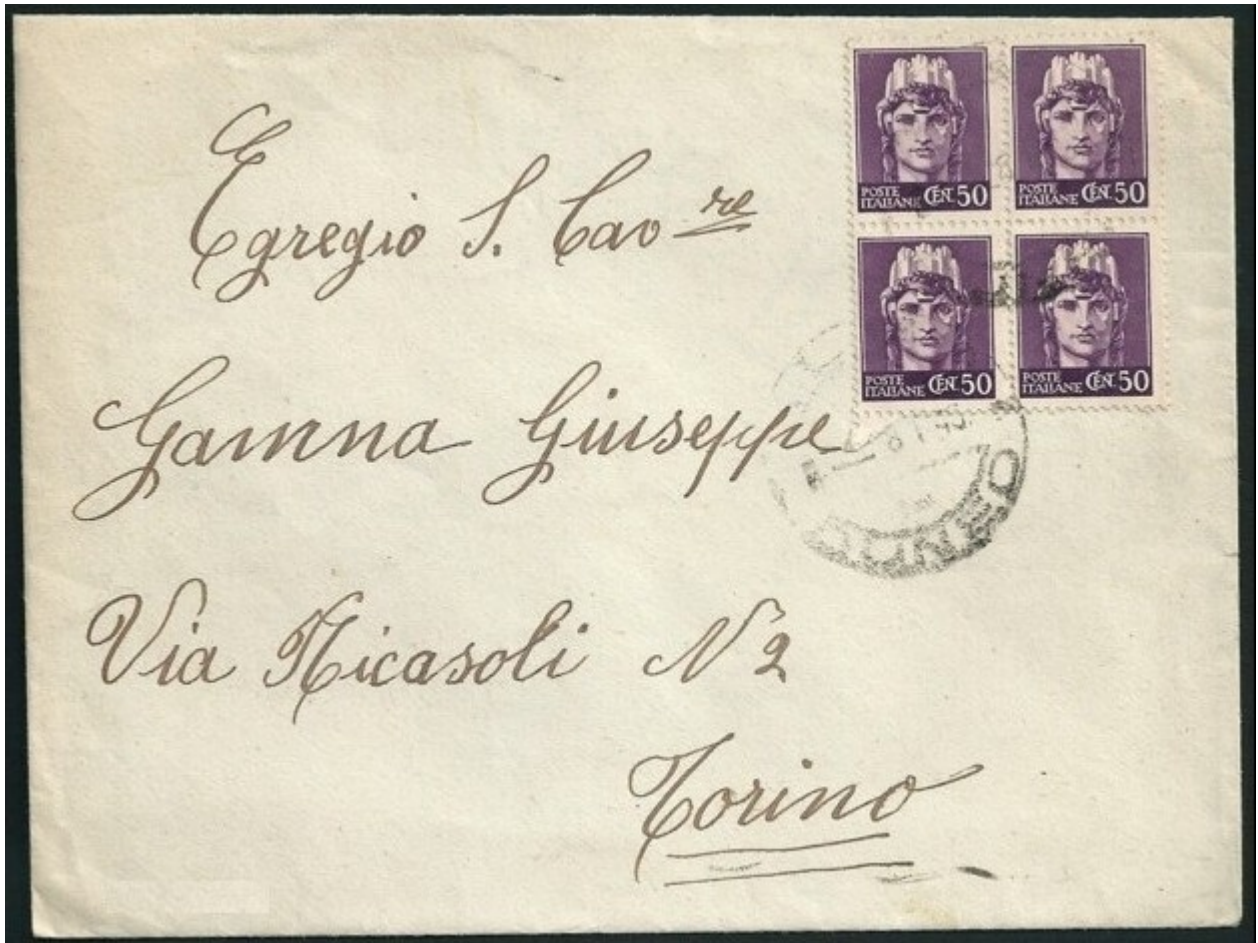 Egregio S. Cav re
Gamna Giuseppe
Via Ricasoli N 2
Torino
POSTE ITALIANE CENT. 50
POSTE ITALIANE CENT. 50
POSTE ITALIANE CENT. 50
POSTE ITALIANE CENT. 50
CUNEO